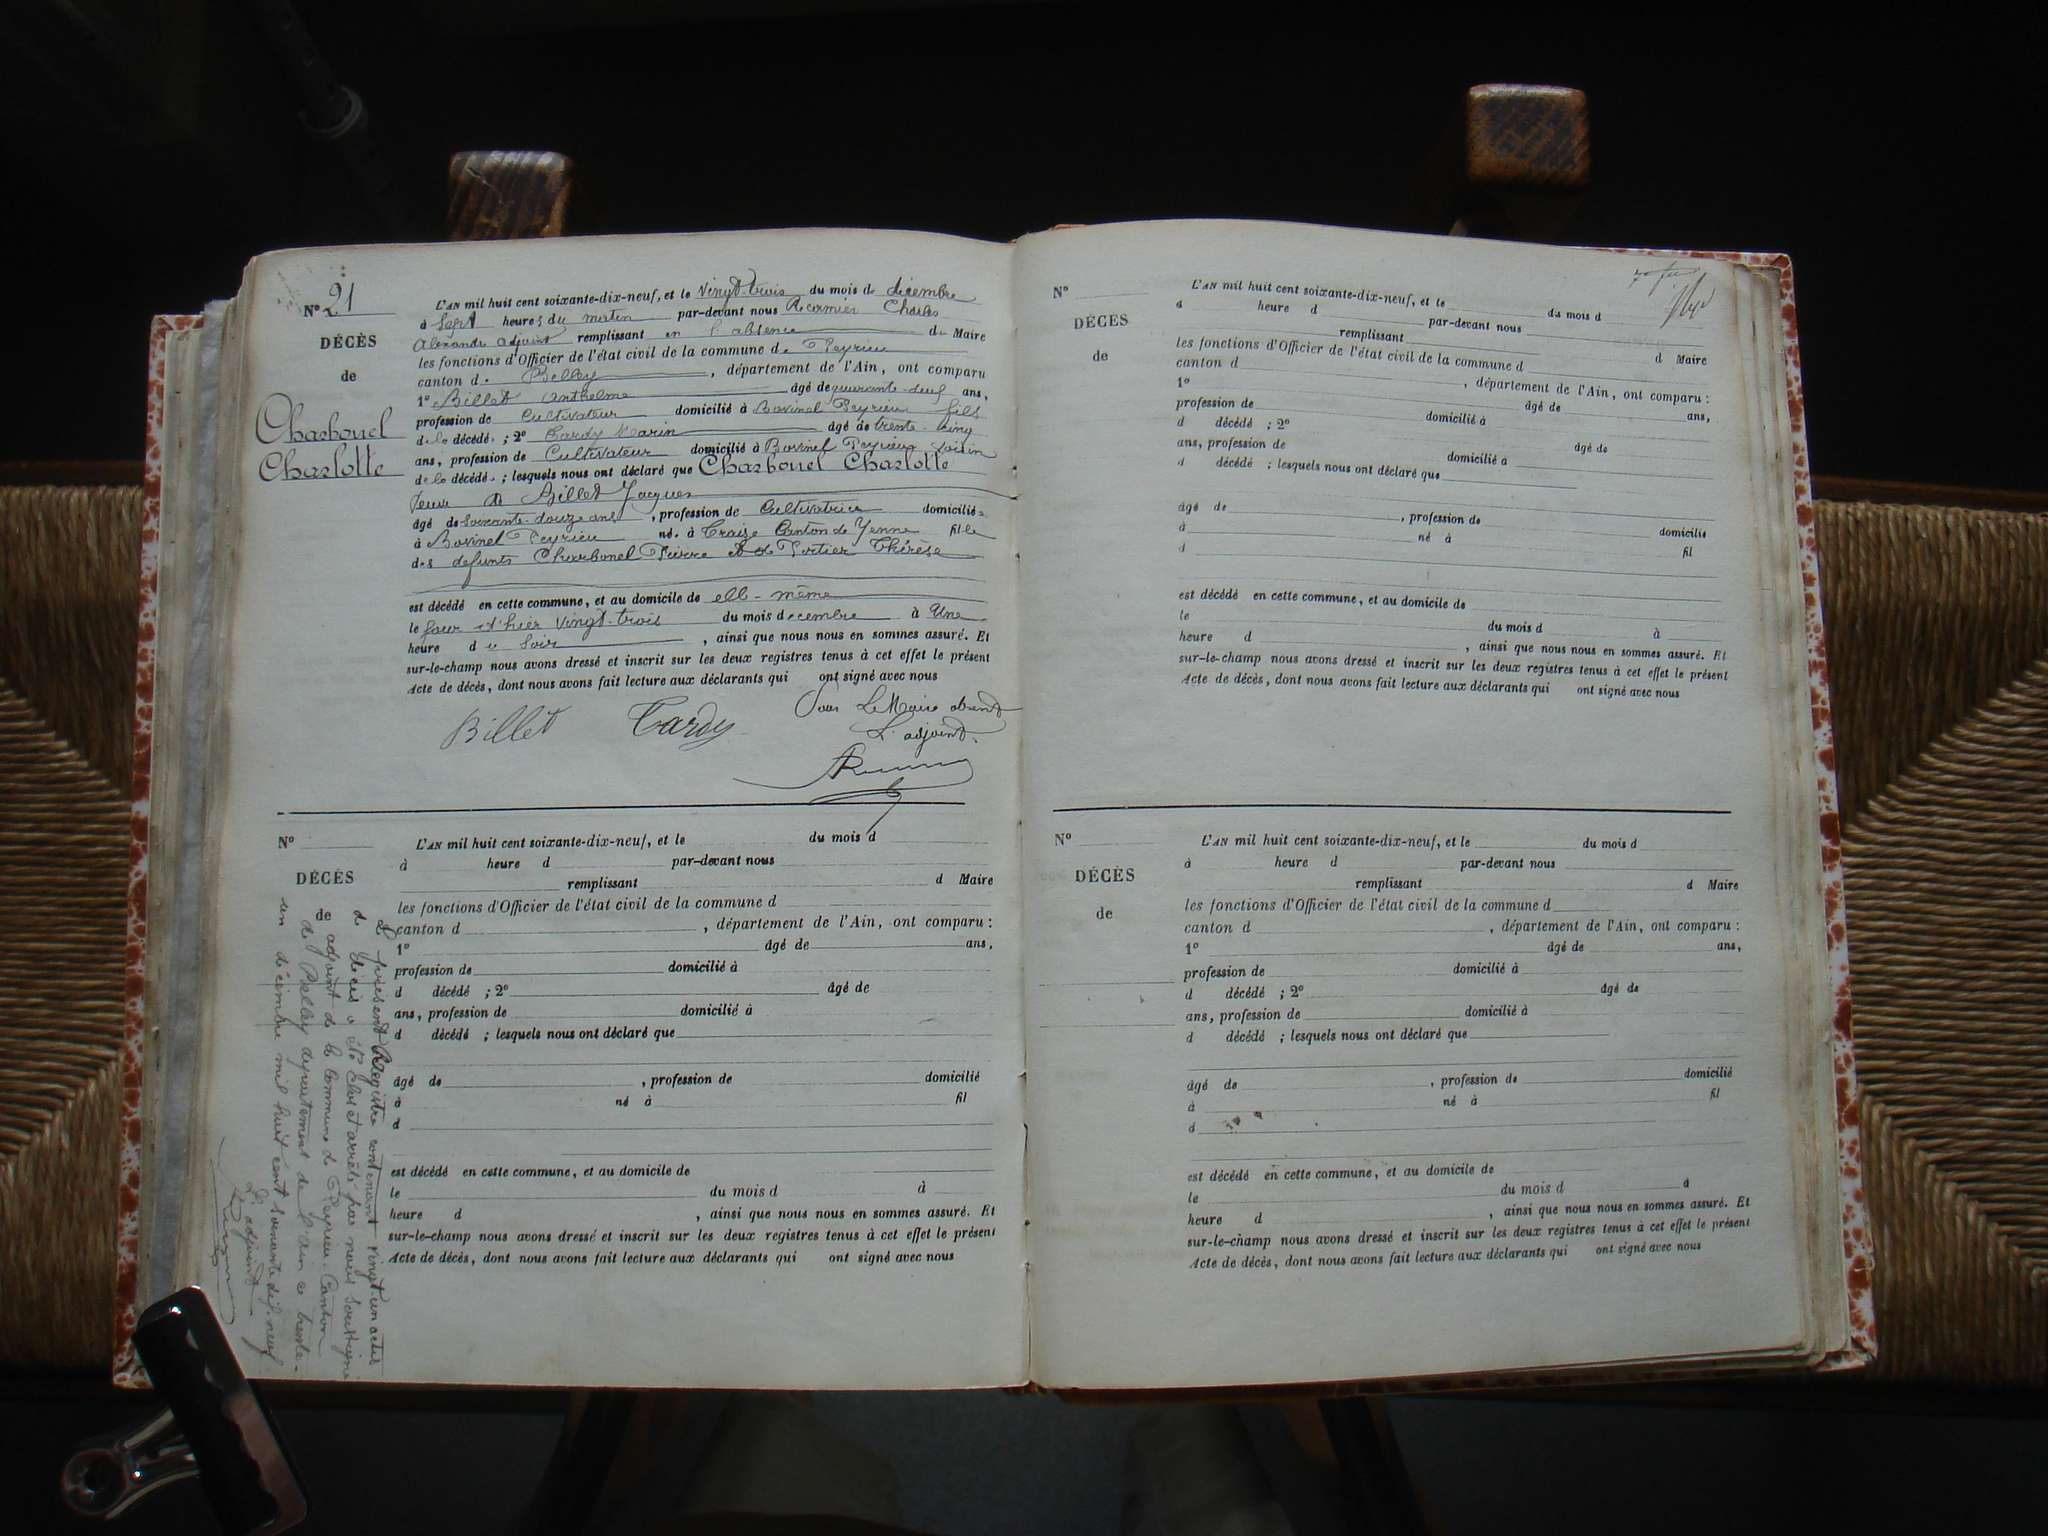 Nº 21
DÉCÈS
de
Charbonel
Charlotte
L'AN mil huit cent soixante-dix-neuf, et le vingt-trois du mois de décembre
à sept heures du matin par-devant nous Récamier Charles
Alexandre adjoint remplissant en l'absence du Maire
les fonctions d'Officier de l'état civil de la commune de Peyrieu
canton de Belley, département de l'Ain, ont comparu
1º Billet Anthelme âgé de quarante-neuf ans,
profession de Cultivateur domicilié à Bovinel Peyrieu fils
de la décédée ; 2º Tardy Marin âgé de trente-cinq
ans, profession de Cultivateur domicilié à Bovinel Peyrieu voisin
de la décédée ; lesquels nous ont déclaré que Charbonel Charlotte
veuve de Billet Jacques
âgé de soixante-douze ans, profession de Cultivatrice domiciliée
à Bovinel Peyrieu né à Traize Canton de Yenne fille
des defunts Charbonel Pierre et de Portier Thérèse
est décédé en cette commune, et au domicile de elle-même
le jour d'hier vingt-trois du mois decembre à Une
heure du soir, ainsi que nous nous en sommes assuré. Et
sur-le-champ nous avons dressé et inscrit sur les deux registres tenus à cet effet le présent
Acte de décès, dont nous avons fait lecture aux déclarants qui ont signé avec nous
Billet Tardy Pour Le Maire absent
L'adjoint.
Nº
DÉCÈS
de
L'AN mil huit cent soixante-dix-neuf, et le du mois d
à heure d par-devant nous
remplissant d Maire
les fonctions d'Officier de l'état civil de la commune d
canton d , département de l'Ain, ont comparu :
1º âgé de ans,
profession de domicilié à
d décédé ; 2º âgé de
ans, profession de domicilié à
d décédé ; lesquels nous ont déclaré que
âgé de , profession de domicilié
à né à fil
d
est décédé en cette commune, et au domicile de
le du mois d à
heure d , ainsi que nous nous en sommes assuré. Et
sur-le-champ nous avons dressé et inscrit sur les deux registres tenus à cet effet le présent
Acte de décès, dont nous avons fait lecture aux déclarants qui ont signé avec nous
Le présent Registre contenant vingt-un actes
de décès a été clos et arrêté par nous soussigné
adjoint de la Commune de Peyrieu, Canton
de Belley département de l'ain ce trente-
un décembre mil huit cent soixante dix-neuf
L'adjoint
Nº
DÉCÈS
de
L'AN mil huit cent soixante-dix-neuf, et le du mois d
à heure d par-devant nous
remplissant d Maire
les fonctions d'Officier de l'état civil de la commune d
canton d , département de l'Ain, ont comparu :
1º âgé de ans,
profession de domicilié à
d décédé ; 2º âgé de
ans, profession de domicilié à
d décédé ; lesquels nous ont déclaré que
âgé de , profession de domicilié
à né à fil
d
est décédé en cette commune, et au domicile de
le du mois d à
heure d , ainsi que nous nous en sommes assuré. Et
sur-le-champ nous avons dressé et inscrit sur les deux registres tenus à cet effet le présent
Acte de décès, dont nous avons fait lecture aux déclarants qui ont signé avec nous
Nº
DÉCÈS
de
L'AN mil huit cent soixante-dix-neuf, et le du mois d
à heure d par-devant nous
remplissant d Maire
les fonctions d'Officier de l'état civil de la commune d
canton d , département de l'Ain, ont comparu :
1º âgé de ans,
profession de domicilié à
d décédé ; 2º âgé de
ans, profession de domicilié à
d décédé ; lesquels nous ont déclaré que
âgé de , profession de domicilié
à né à fil
d
est décédé en cette commune, et au domicile de
le du mois d à
heure d , ainsi que nous nous en sommes assuré. Et
sur-le-champ nous avons dressé et inscrit sur les deux registres tenus à cet effet le présent
Acte de décès, dont nous avons fait lecture aux déclarants qui ont signé avec nous